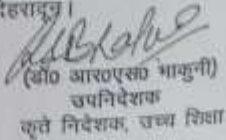 देहरादून।
(डॉ0 आर0एस0 भाकुनी)
उपनिदेशक
कृते निदेशक, उच्च शिक्षा